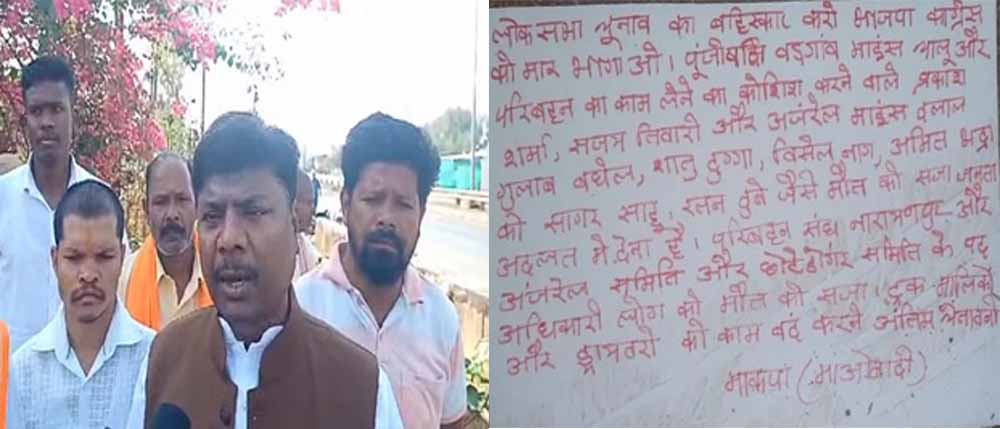 लोकसभा चुनाव का बहिस्कार करो भाजपा कांग्रेस
को मार भागाओ। पूंजीपति बड़गांव माइंस चालू और
परिबहन का काम लेने का कोशिश करने वाले प्रकाश
शर्मा, सजत्र तिवारी और अंजरेल माइंस दलाल
गुलाब बघेल, शातु दुग्गा, विसेल नाग, अमित भद्रा
को सागर साहू, रतन दुबे जैसे मौत की सजा जनता
अदलत मे देना है। परिबहन संघ नारायणपुर और
अंजरेल समिति और छोटेडोंगर समिति के पद
अधिकारी लोग को मौत को सजा। ट्रक मालिको
और ड्रायवरो को काम बंद करने अंतिम चेतावनी
माकपा (माओवादी)